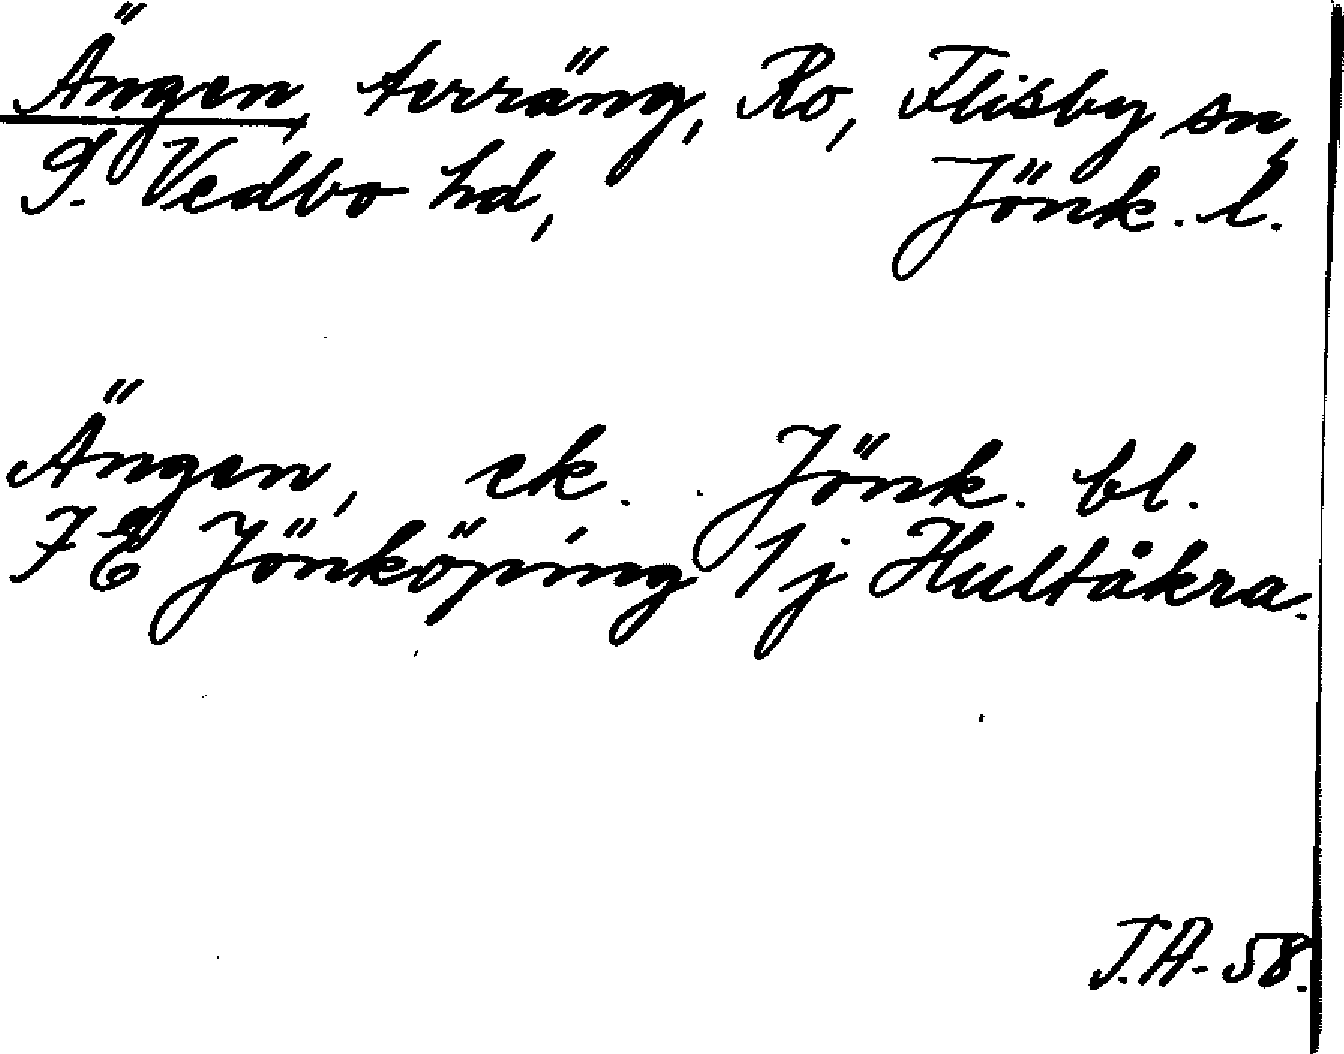 Ängen, terräng, Ro, Flisby sn,
S. Vedbo hd, Jönk. l.
Ängen, ek. Jönk. bl.
7 E Jönköping 1 j Hultåkra.
T.A. 58.